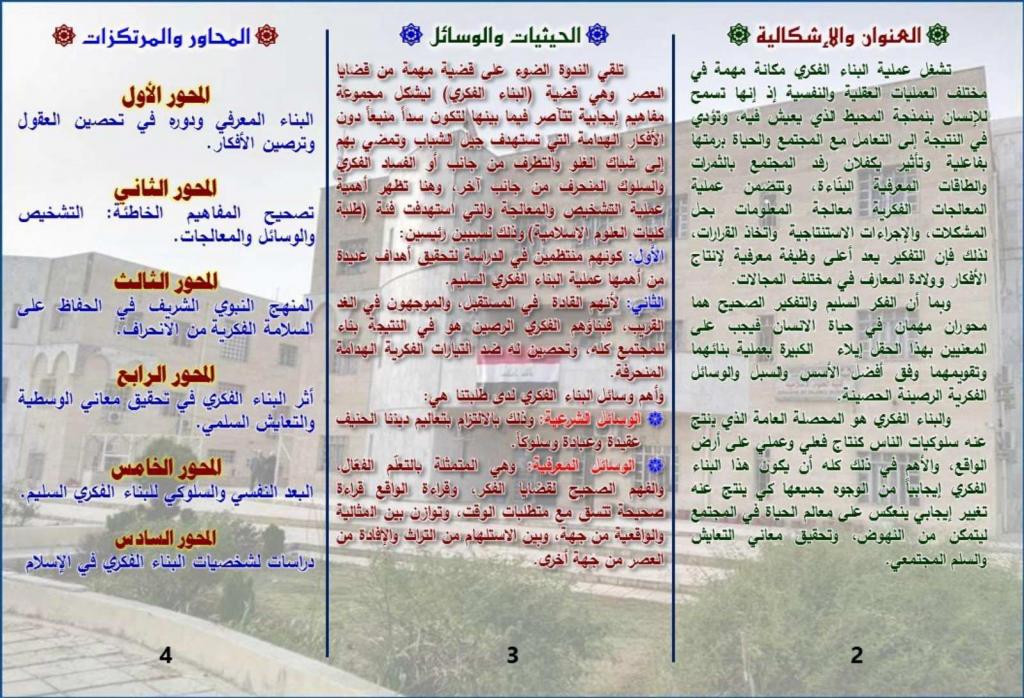 العنوان والإشكالية
تشغل عملية البناء الفكري مكانة مهمة في
مختلف العمليات العقلية والنفسية إذ إنها تسمح
للإنسان بنمذجة المحيط الذي يعيش فيه، وتؤدي
في النتيجة إلى التعامل مع المجتمع والحياة برمتها
بفاعلية وتأثير يكفلان رفد المجتمع بالثمرات
والطاقات المعرفية البناءة، وتتضمن عملية
المعالجات الفكرية معالجة المعلومات بحل
المشكلات، والإجراءات الاستنتاجية واتخاذ القرارات،
لذلك فإن التفكير يعد أعلى وظيفة معرفية لإنتاج
الأفكار وولادة المعارف في مختلف المجالات.
وبما أن الفكر السليم والتفكير الصحيح هما
محوران مهمان في حياة الانسان فيجب على
المعنيين بهذا الحقل إيلاء الكبيرة بعملية بنائهما
وتقويمهما وفق أفضل الأسس والسبل والوسائل
الفكرية الرصينة الحصينة.
والبناء الفكري هو المحصلة العامة الذي ينتج
عنه سلوكيات الناس كنتاج فعلي وعملي على أرض
الواقع، والأهم في ذلك كله أن يكون هذا البناء
الفكري إيجابياً من الوجوه جميعها كي ينتج عنه
تغيير إيجابي ينعكس على معالم الحياة في المجتمع
ليتمكن من النهوض، وتحقيق معاني التعايش
والسلم المجتمعي.
2
الحيثيات والوسائل
تلقي الندوة الضوء على قضية مهمة من قضايا
العصر وهي قضية (البناء الفكري) ليشكل مجموعة
مفاهيم إيجابية تتآصر فيما بينها لتكون سداً منيعاً دون
الأفكار الهدامة التي تستهدف جيل الشباب وتمضي بهم
إلى شباك الغلو والتطرف من جانب أو الفساد الفكري
والسلوك المنحرف من جانب آخر، وهنا تظهر أهمية
عملية التشخيص والمعالجة والتي استهدفت فئة (طلبة
كليات العلوم الإسلامية) وذلك لسببين رئيسين:
الأول: كونهم منتظمين في الدراسة لتحقيق أهداف عديدة
من أهمها عملية البناء الفكري السليم.
الثاني: لأنهم القادة في المستقبل، والموجهون في الغد
القريب، فبناؤهم الفكري الرصين هو في النتيجة بناء
للمجتمع كله، وتحصين له ضد التيارات الفكرية الهدامة
المنحرفة.
وأهم وسائل البناء الفكري لدى طلبتنا هي:
الوسائل الشرعية: وذلك بالالتزام بتعاليم ديننا الحنيف
عقيدة وعبادة وسلوكاً.
الوسائل المعرفية: وهي المتمثلة بالتعلّم الفعّال،
والفهم الصحيح لقضايا الفكر، وقراءة الواقع قراءة
صحيحة تتسق مع متطلبات الوقت، وتوازن بين المثالية
والواقعية من جهة، وبين الاستلهام من التراث والإفادة من
العصر من جهة أخرى.
3
المحاور والمرتكزات
المحور الأول
البناء المعرفي ودوره في تحصين العقول
وترصين الأفكار.
المحور الثاني
تصحيح المفاهيم الخاطئة: التشخيص
والوسائل والمعالجات.
المحور الثالث
المنهج النبوي الشريف في الحفاظ على
السلامة الفكرية من الانحراف.
المحور الرابع
أثر البناء الفكري في تحقيق معاني الوسطية
والتعايش السلمي.
المحور الخامس
البعد النفسي والسلوكي للبناء الفكري السليم.
المحور السادس
دراسات لشخصيات البناء الفكري في الإسلام
4